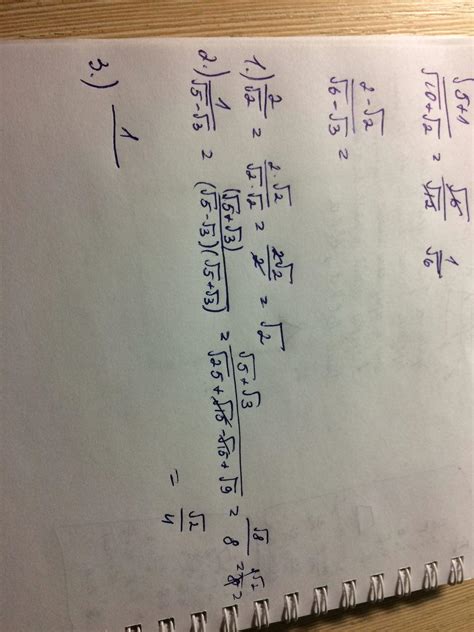 (√5+1)/(√10+√2) = √6/√12 1/√6
(2-√2)/(√6-√3) =
1.) 2/√2 = (2·√2)/(√2·√2) = 2√2/2 = √2
2.) 1/(√5-√3) = (√5+√3)/((√5-√3)(√5+√3)) = (√5+√3)/(√25+√15-√15+√9) = √8/8 = 2√2/8 =
= √2/4
3.) 1/